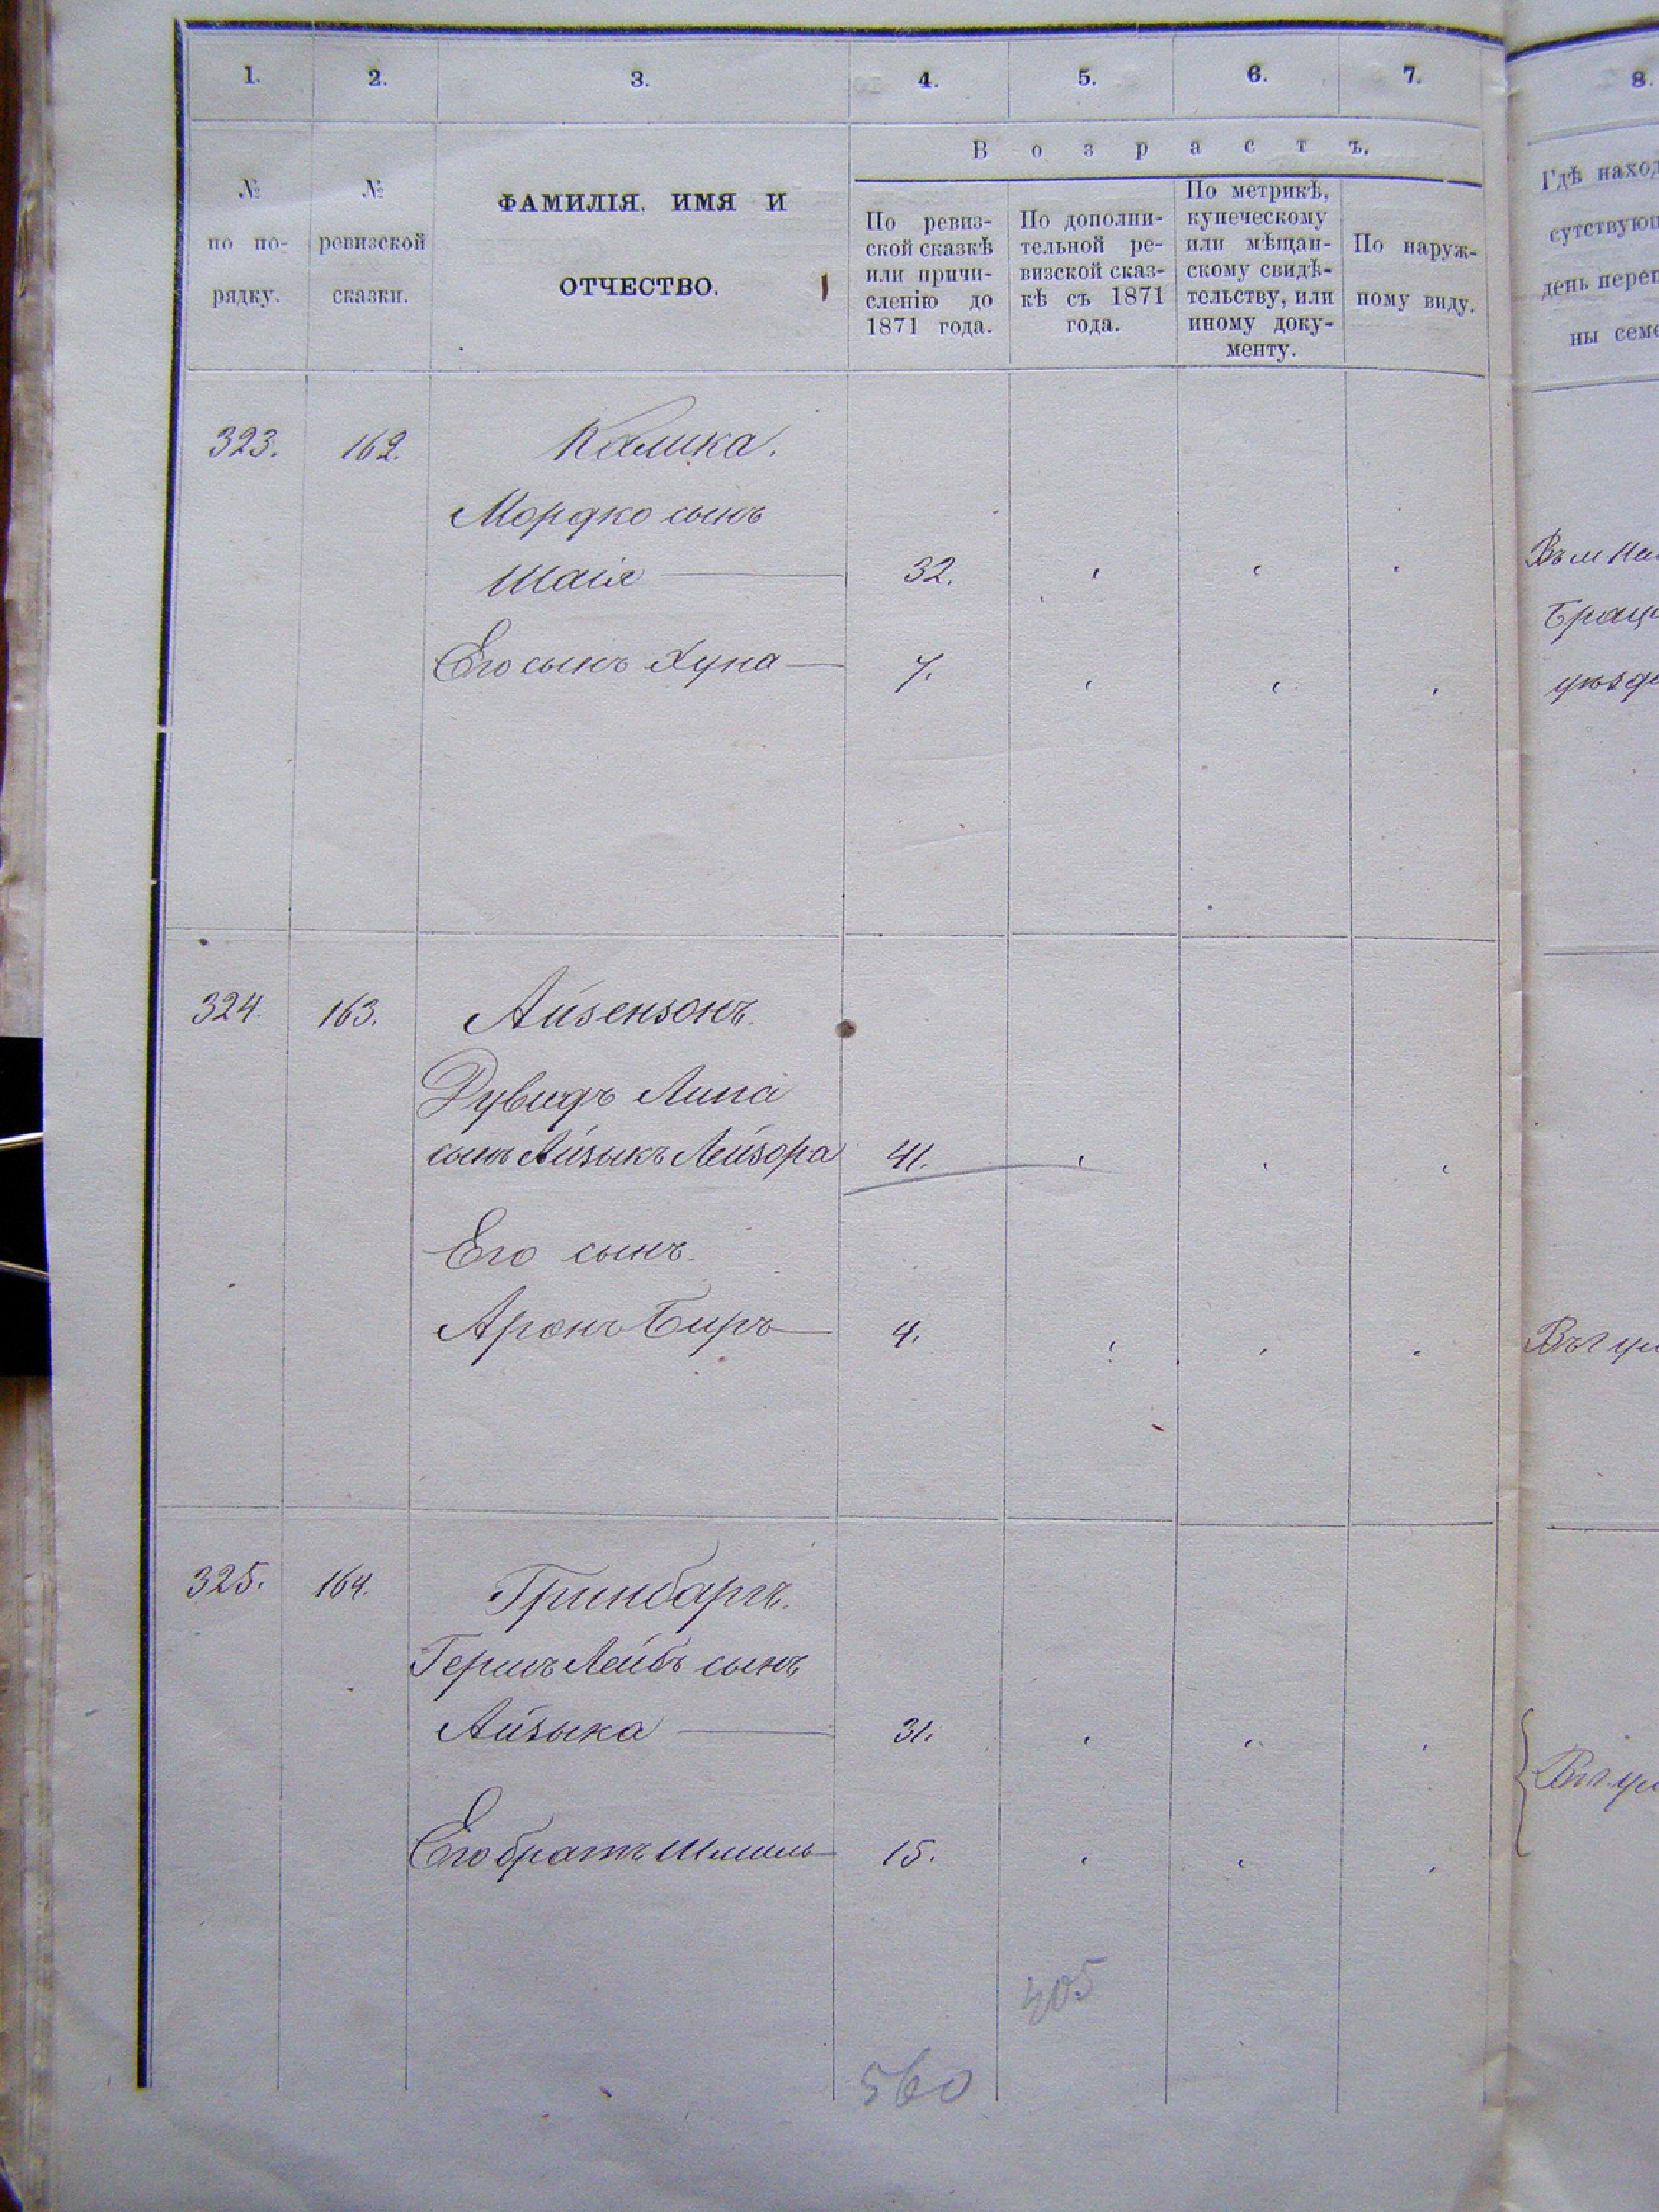 1. 2. 3. 4. 5. 6. 7. 8.
Возрастъ.
№ по по-рядку.
№ ревизской сказки.
ФАМИЛІЯ, ИМЯ И
ОТЧЕСТВО.
По ревиз-
ской сказкѣ
или причи-
сленію до
1871 года.
По дополни-
тельной ре-
визской сказ-
кѣ съ 1871
года.
По метрикѣ,
купеческому
или мѣщан-
скому свидѣ-
тельству, или
иному доку-
менту.
По наруж-
ному виду.
Гдѣ наход
сутствующ
день переп
ны семе
323. 162. Калика.
Мордко сынъ
Шаія 32.
Его сынъ Хуна 7.
Въ м
Брац
уѣзд
324. 163. Айзензонъ.
Дувидъ Липа
сынъ Айзыкъ Лейзора 41.
Его сынъ.
Аронъ Беръ 4.
325. 164. Гринбаргъ.
Гершъ Лейбъ сынъ
Айзыка 31.
Его братъ Шмиль 15.
405
560